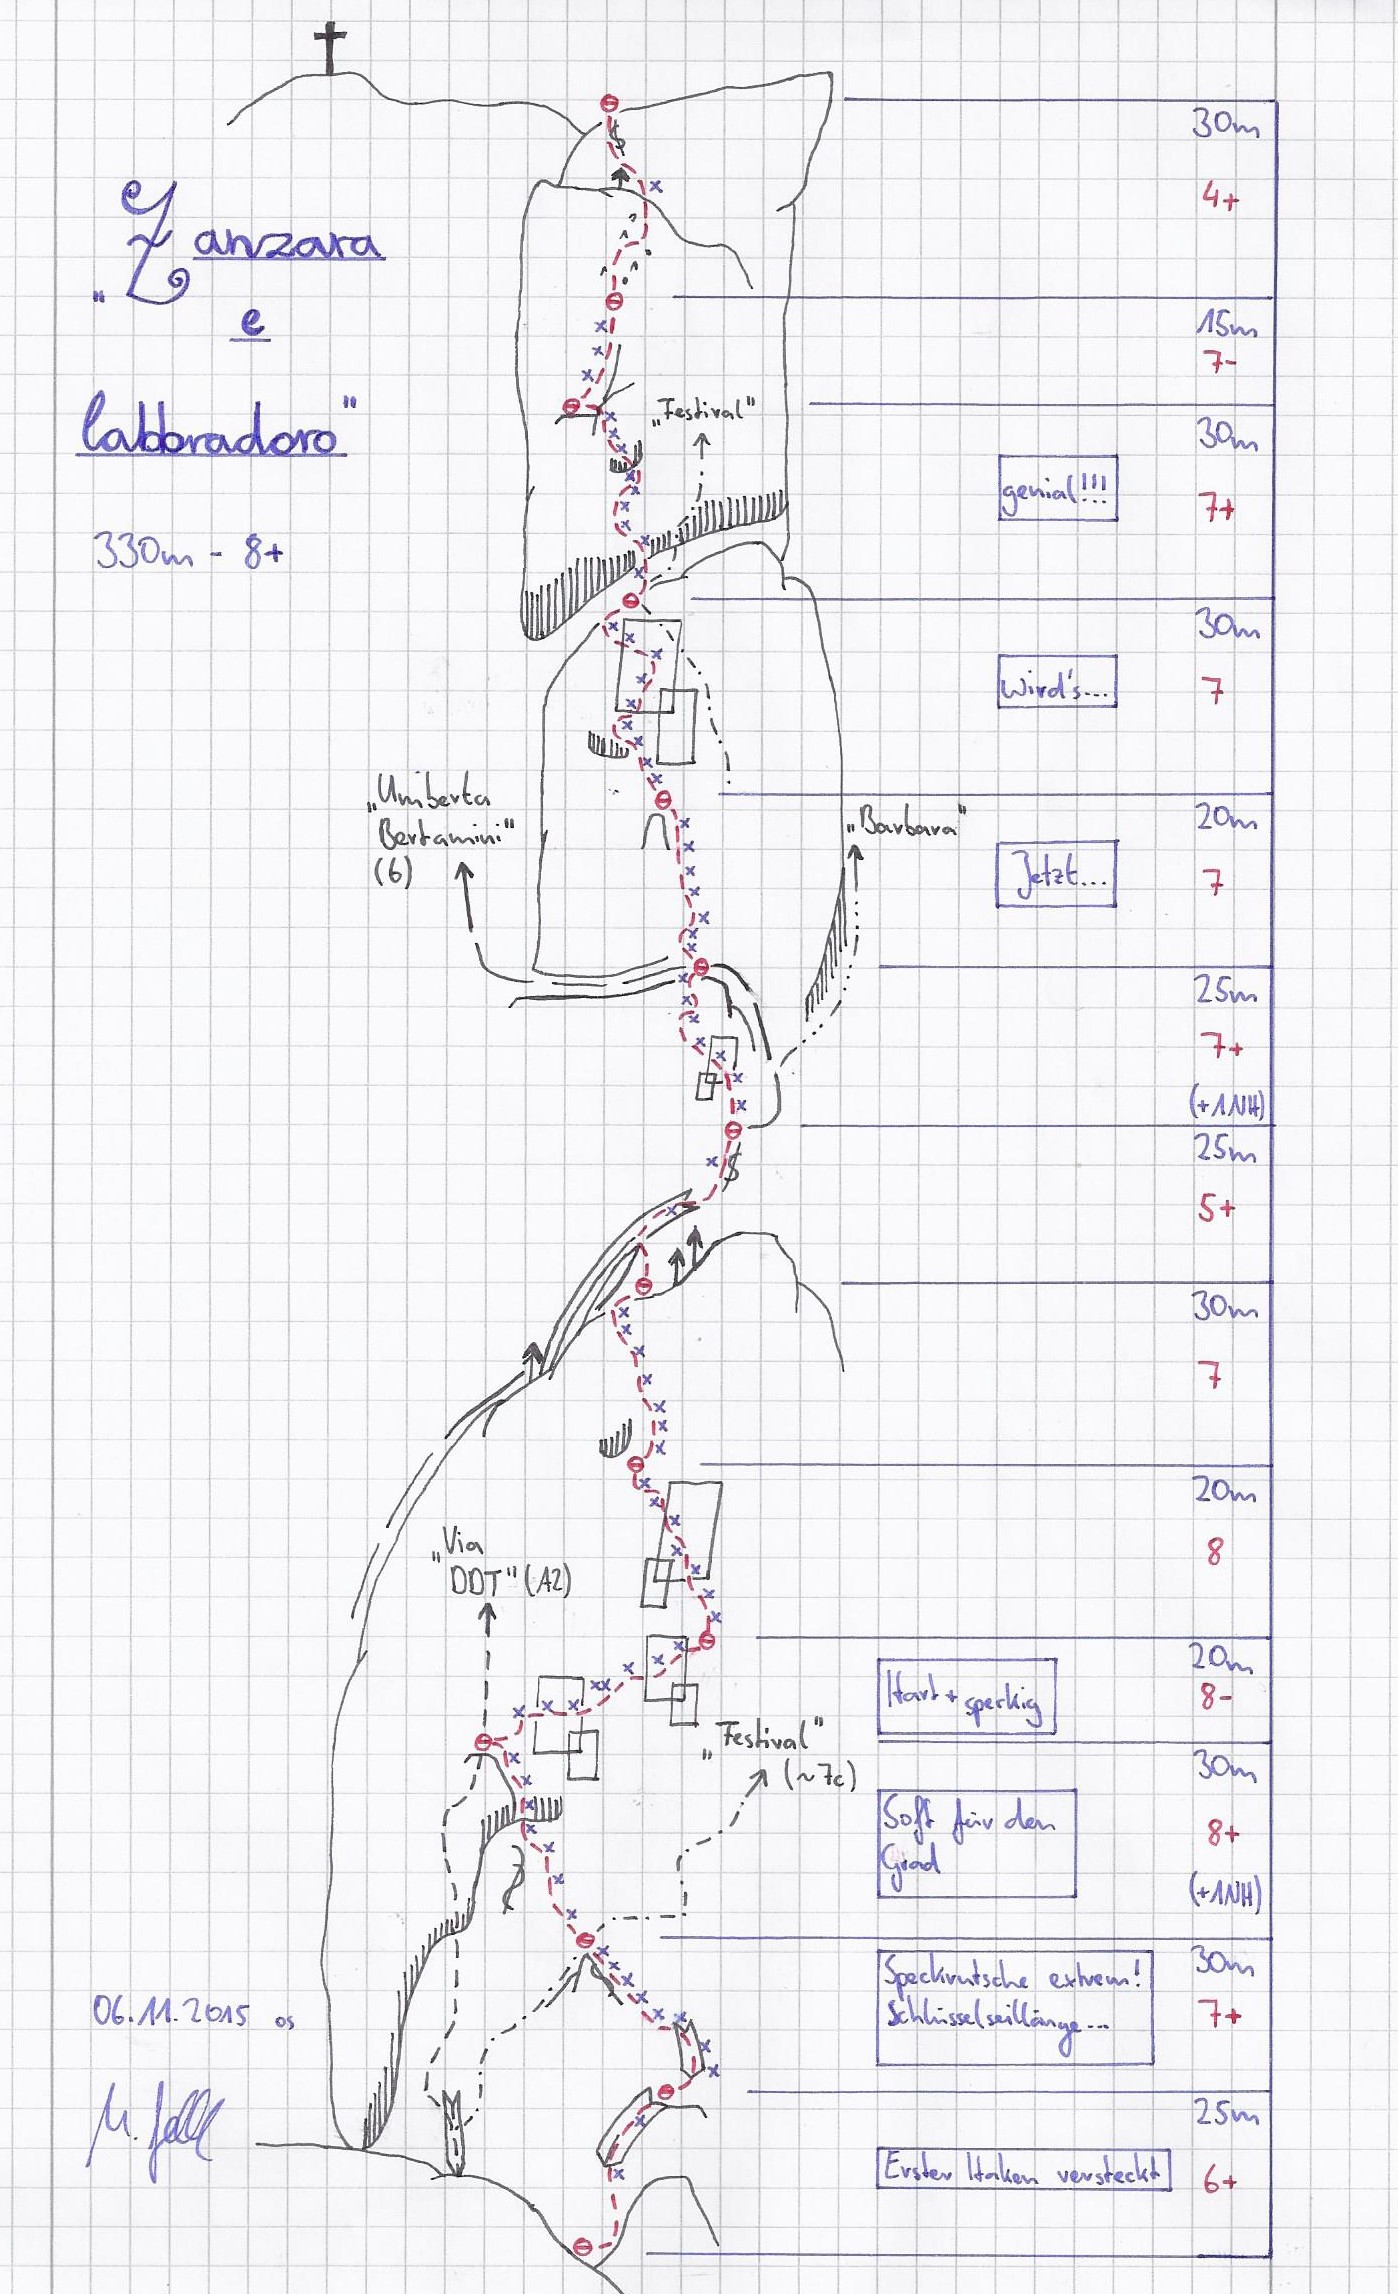 "Zanzara
e
labbradoro"
330m - 8+
30m
4+
15m
7-
"Festival"
30m
genial!!!
7+
30m
Wird's...
7
"Umberta
Bertamini"
(6)
"Barbara"
20m
Jetzt...
7
25m
7+
(+1NH)
25m
5+
30m
7
20m
8
"Via
DDT" (A2)
20m
Hart + speckig
8-
"Festival"
(~7c)
30m
Soft für den
Grad
8+
(+1NH)
30m
Speckrutsche extrem!
Schlüsselseillänge...
7+
06.11.2015 os
25m
Erster Haken versteckt
6+